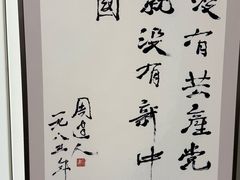 没有共產党
就没有新中
國
周建人
一九八五年